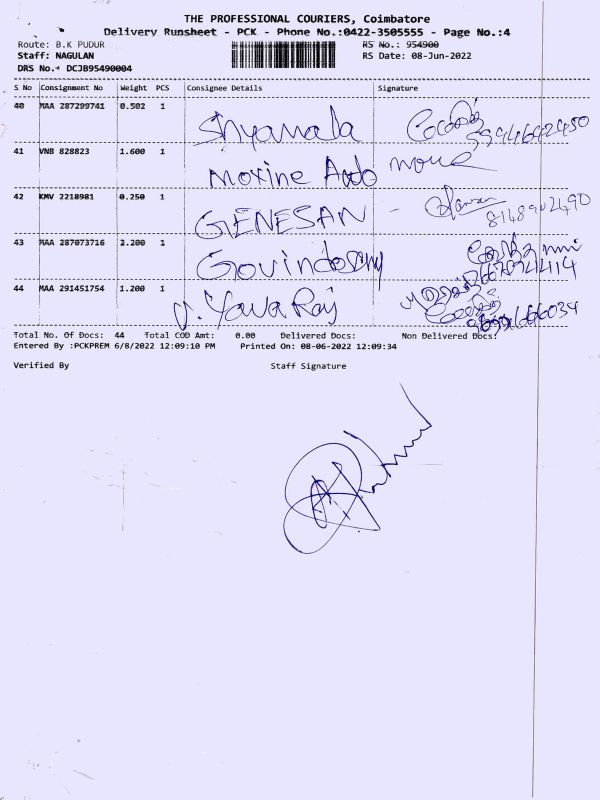 THE PROFESSIONAL COURIERS, Coimbatore
Delivery Runsheet - PCK - Phone No.:0422-3505555 - Page No.:4
Route: B.K PUDUR
RS No.: 954900
Staff: NAGULAN
RS Date: 08-Jun-2022
DRS No.- DCJB95490004
S No Consignment No Weight PCS Consignee Details Signature
40 MAA 287299741 0.502 1 Shyamala
41 VNB 828823 1.600 1 Moxine Auto
42 KMV 2218981 0.250 1 GENESAN - 8148902490
43 MAA 287073716 2.200 1
44 MAA 291451754 1.200 1
Total No. Of Docs: 44 Total COD Amt: 0.00 Delivered Docs: Non Delivered Docs:
Entered By :PCKPREM 6/8/2022 12:09:10 PM Printed On: 08-06-2022 12:09:34
Verified By Staff Signature